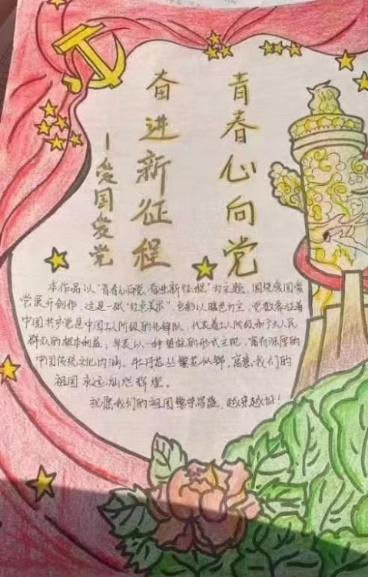 青春心向党
奋进新征程
—爱国爱党
本作品以“青春心向党，奋进新征程”为主题，围绕爱国爱
党展开创作，这是一张“红色美术”，色彩以暖色为主，党徽象征着
中国共产党是中国工人阶级的先锋队，代表着工人阶级和广大人民
群众的根本利益，华表以一种的形式立现，富有深厚的
中国传统文化内涵。牡丹花丛繁花似锦，寓意我们的
祖国永远灿烂辉煌。
祝愿我们的祖国繁荣昌盛，越来越好！